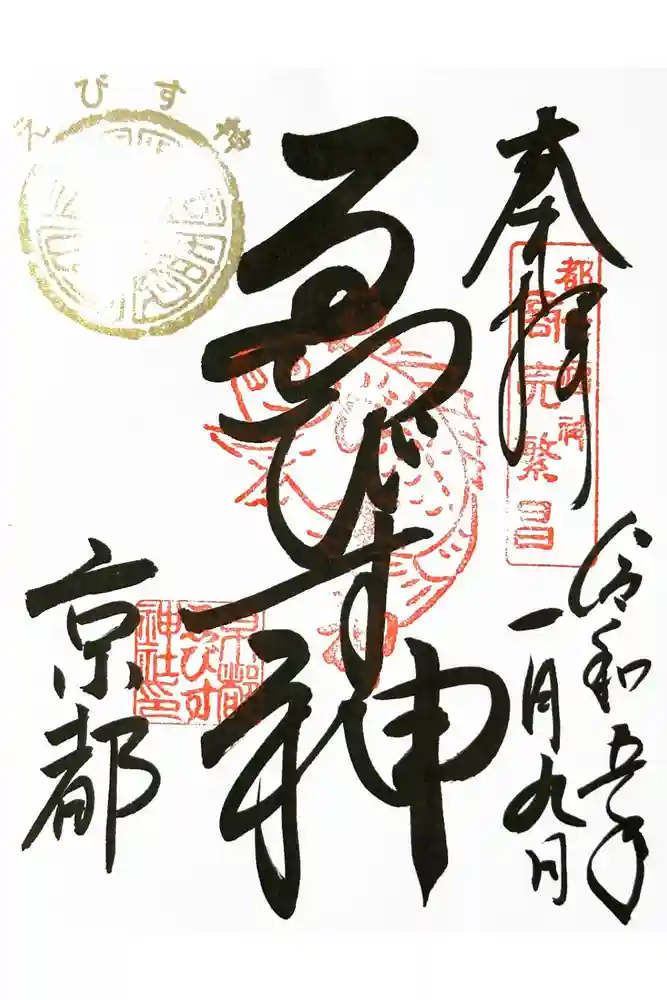 奉拝
令和五年
一月九日
ゑびす神
京都
都
神
商売繁昌
京都
ゑびす
神社印
ゑびす